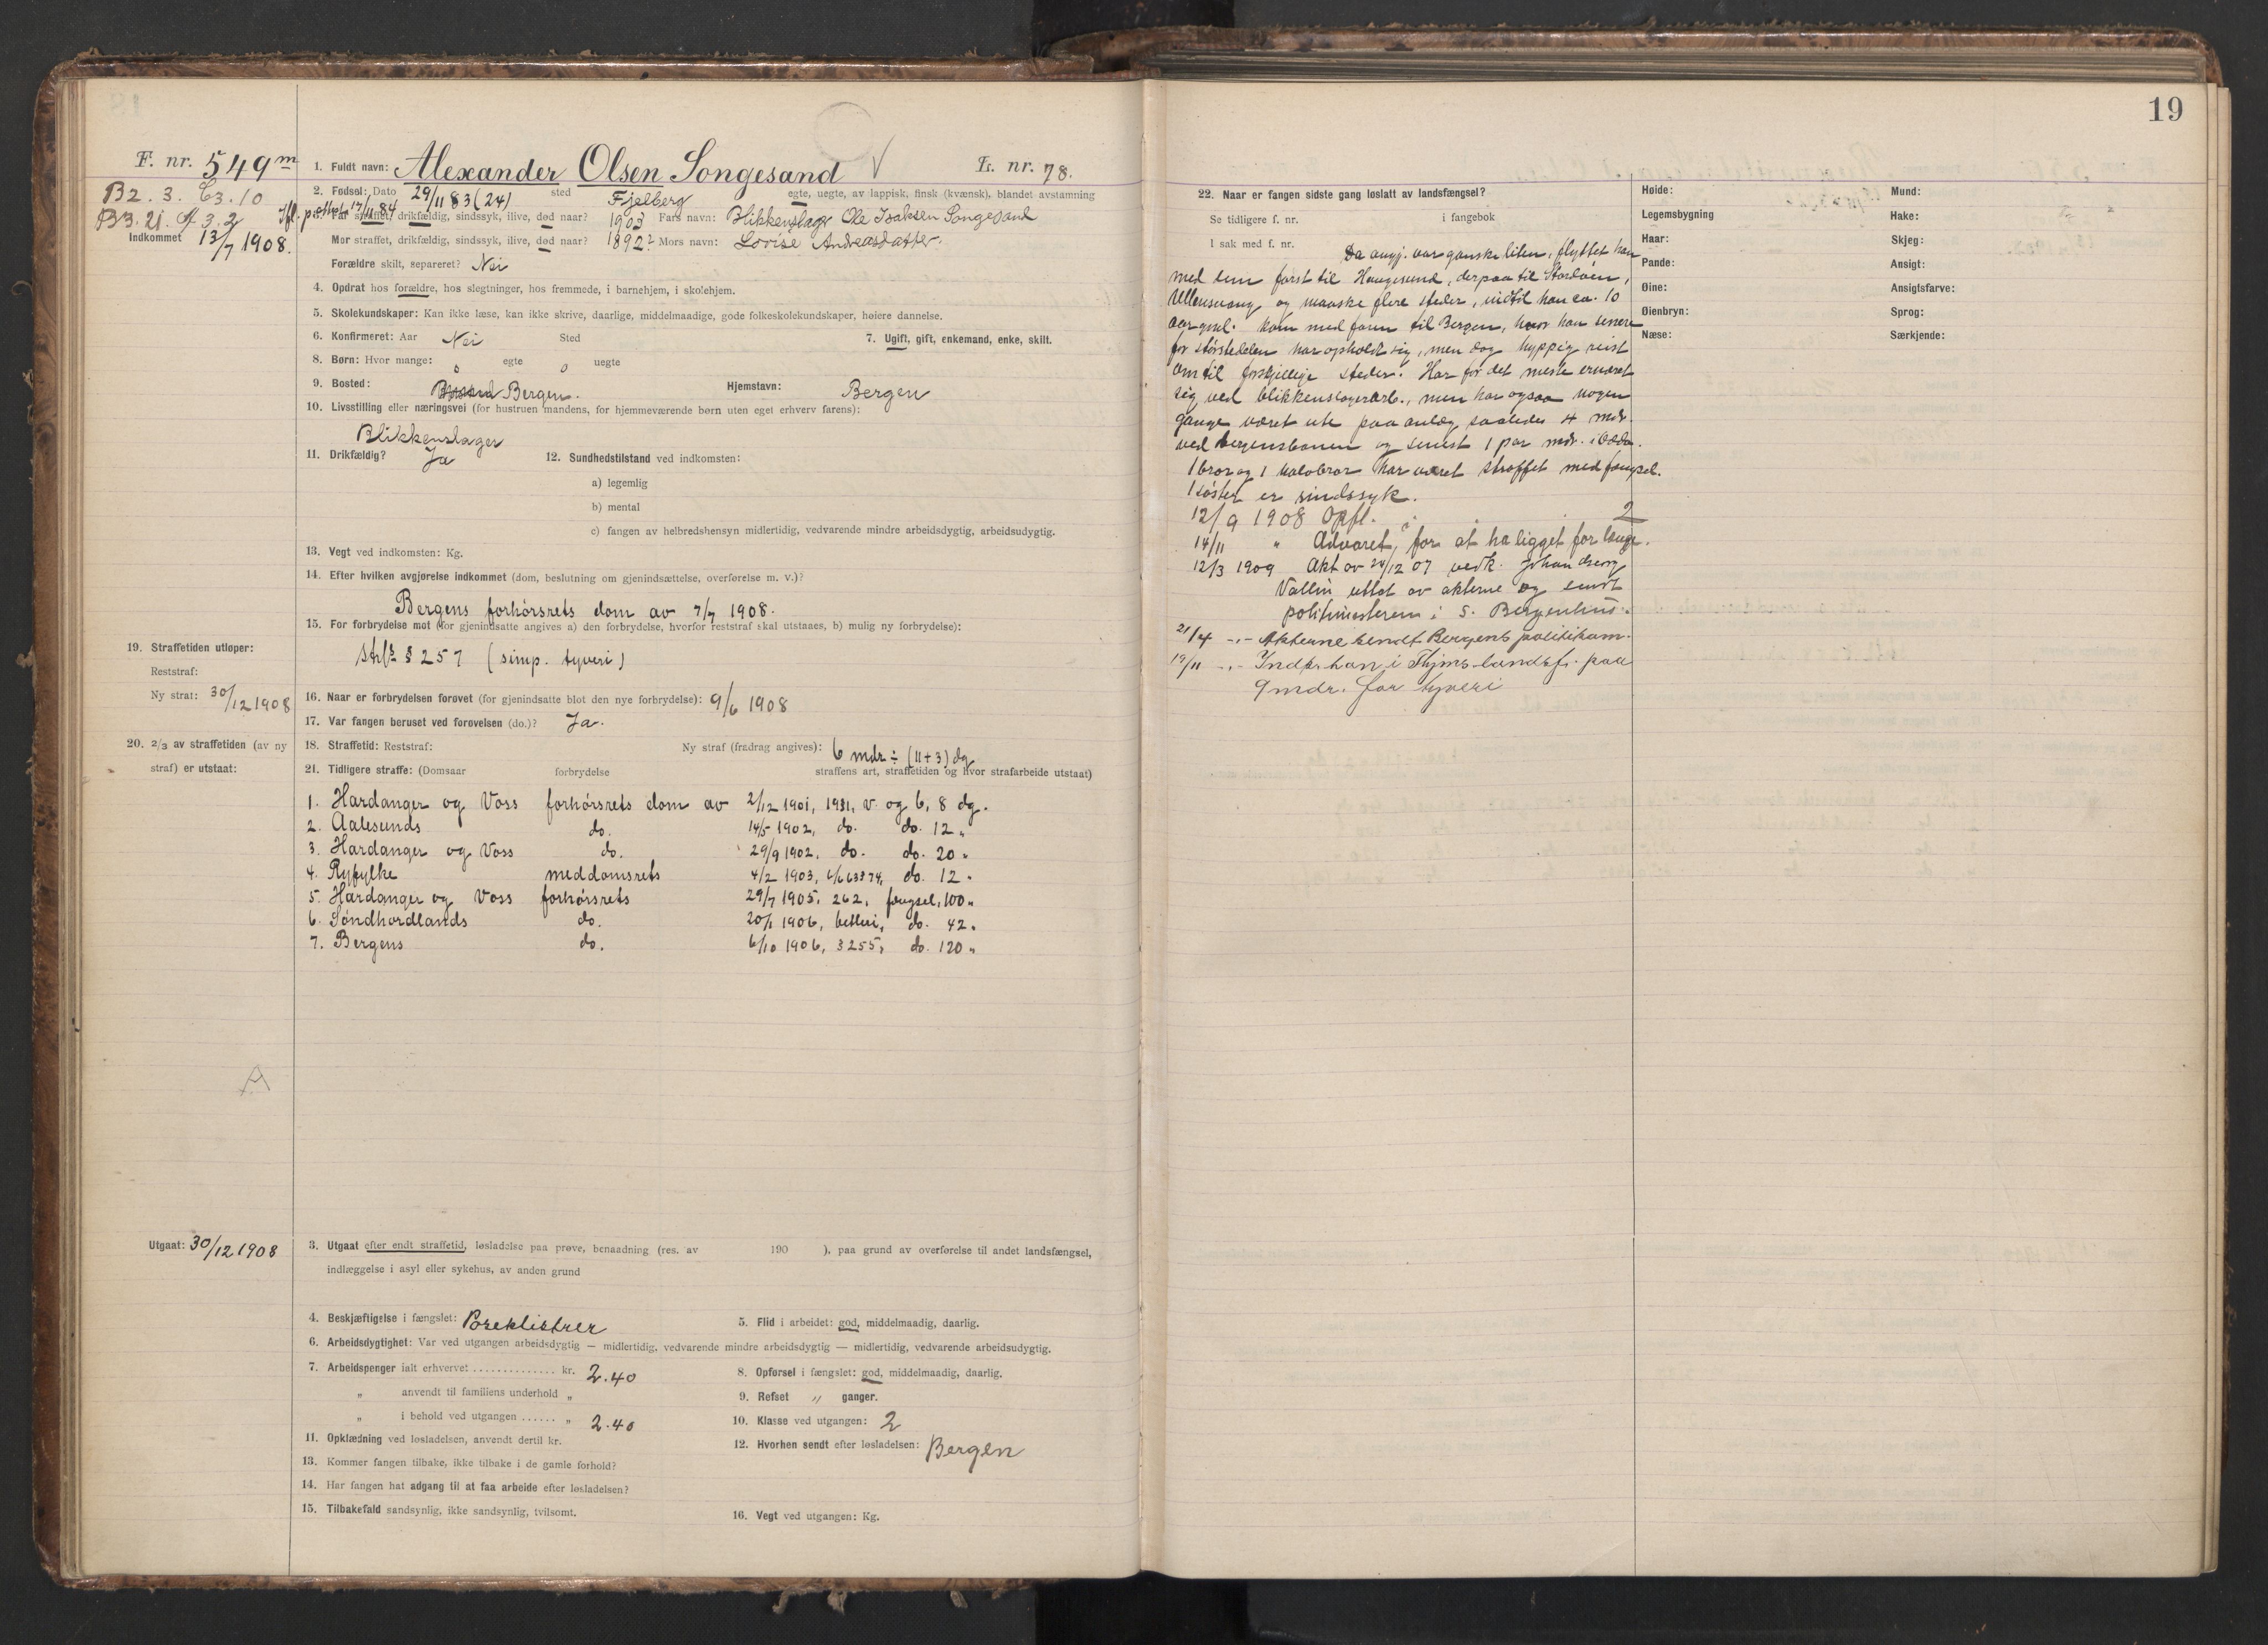 19
F. nr. 549 m
1. Fuldt navn: Alexander Olsen Songesand
L. nr. 78.
B2. 3. C3. 10
B3. 21. A 3. 2
Indkommet 13/7 1908.
2. Fødsel: Dato 29/11 83 (24) sted Fjelberg egte, uegte, av lappisk, finsk (kvænsk), blandet avstamning
Ifl. p.attest 17/11 84
3. Far straffet, drikfældig, sindssyk, ilive, død naar? 1903 Fars navn: Blikkenslager Ole Isaksen Songesand
Mor straffet, drikfældig, sindssyk, ilive, død naar? 1892? Mors navn: Lovise Andreasdatter.
Forældre skilt, separeret? Nei
4. Opdrat hos forældre, hos slegtninger, hos fremmede, i barnehjem, i skolehjem.
5. Skolekundskaper: Kan ikke læse, kan ikke skrive, daarlige, middelmaadige, gode folkeskolekundskaper, høiere dannelse.
6. Konfirmeret: Aar Nei Sted
7. Ugift, gift, enkemand, enke, skilt.
8. Børn: Hvor mange: 0 egte 0 uegte
9. Bosted: Bergen. Hjemstavn: Bergen
10. Livsstilling eller næringsvei (for hustruen mandens, for hjemmeværende børn uten eget erhverv farens):
Blikkenslager
11. Drikfældig? Ja
12. Sundhedstilstand ved indkomsten:
a) legemlig
b) mental
c) fangen av helbredshensyn midlertidig, vedvarende mindre arbeidsdygtig, arbeidsudygtig.
13. Vegt ved indkomsten: Kg.
14. Efter hvilken avgjørelse indkommet (dom, beslutning om gjenindsættelse, overførelse m. v.)?
Bergens forhørsrets dom av 7/7 1908.
15. For forbrydelse mot (for gjenindsatte angives a) den forbrydelse, hvorfor reststraf skal utstaaes, b) mulig ny forbrydelse):
Strfl. § 257 (simp. tyveri)
16. Naar er forbrydelsen forøvet (for gjenindsatte blot den nye forbrydelse): 9/6 1908
17. Var fangen beruset ved forøvelsen (do.)? Ja.
18. Straffetid: Reststraf: Ny straf (fradrag angives): 6 mdr ÷ (11+3) dg
19. Straffetiden utløper:
Reststraf:
Ny straf: 30/12 1908
20. 2/3 av straffetiden (av ny
straf) er utstaat:
21. Tidligere straffe: (Domsaar forbrydelse straffens art, straffetiden og hvor strafarbeide utstaat)
1. Hardanger og Voss forhørsrets dom av 2/12 1901, 1931, v. og b, 8 dg.
2. Aalesunds do. 14/5 1902, do. do. 12 "
3. Hardanger og Voss do. 29/9 1902, do. do. 20 "
4. Ryfylke meddomsrets 4/2 1903, 6/6 63 § 74, do. 12 "
5. Hardanger og Voss forhørsrets 29/7 1905, 262, fængsel, 100 "
6. Søndhordlands do. 20/1 1906, betleri, do. 42 "
7. Bergens do. 6/10 1906, § 255, do. 120 "
A
Utgaat: 30/12 1908
3. Utgaat efter endt straffetid, løsladelse paa prøve, benaadning (res. av 190 ), paa grund av overførelse til andet landsfængsel,
indlæggelse i asyl eller sykehus, av anden grund
4. Beskjæftigelse i fængslet: Poseklistrer
5. Flid i arbeidet: god, middelmaadig, daarlig.
6. Arbeidsdygtighet: Var ved utgangen arbeidsdygtig — midlertidig, vedvarende mindre arbeidsdygtig — midlertidig, vedvarende arbeidsudygtig.
7. Arbeidspenger ialt erhvervet .............. kr. 2.40
8. Opførsel i fængslet: god, middelmaadig, daarlig.
" anvendt til familiens underhold "
9. Refset " ganger.
" i behold ved utgangen ...... " 2.40
10. Klasse ved utgangen: 2
11. Opklædning ved løsladelsen, anvendt dertil kr.
12. Hvorhen sendt efter løsladelsen: Bergen
13. Kommer fangen tilbake, ikke tilbake i de gamle forhold?
14. Har fangen hat adgang til at faa arbeide efter løsladelsen?
15. Tilbakefald sandsynlig, ikke sandsynlig, tvilsomt.
16. Vegt ved utgangen: Kg.
22. Naar er fangen sidste gang løslatt av landsfængsel?
Se tidligere f. nr. i fangebok
I sak med f. nr.
Da angj. var ganske liten, flyttet han
med dem først til Haugesund, derpaa til Stordøen,
Ullensvang og maaske flere steder, indtil han ca. 10
aar gml. kom med faren til Bergen, hvor han senere
for størstedelen har opholdt sig, men dog hyppig reist
om til forskjellige steder. Har for det meste ernæret
sig ved blikkenslagerarb., men har ogsaa nogen
gange været ute paa anlæg saaledes 4 mdr.
ved bergensbanen og senest 1 par mdr. i Odda.
1 bror og 1 halvbror har været straffet med fængsel.
1 søster er sindssyk.
12/9 1908 Opfl. 2
14/11 " Advaret, for at ha ligget for længe.
12/3 1909 Akt av 24/12 07 vedk. Johan Georg
Vallin uttat av akterne og sendt
politimesteren i S. Bergenhus.
21/4 -"- Akterne sendt Bergens politikam.
19/11 -"- Indk. han i Thjms landsf. paa
9 mdr. for tyveri
Høide:
Legemsbygning
Haar:
Pande:
Øine:
Øienbryn:
Næse:
Mund:
Hake:
Skjeg:
Ansigt:
Ansigtsfarve:
Sprog:
Særkjende: